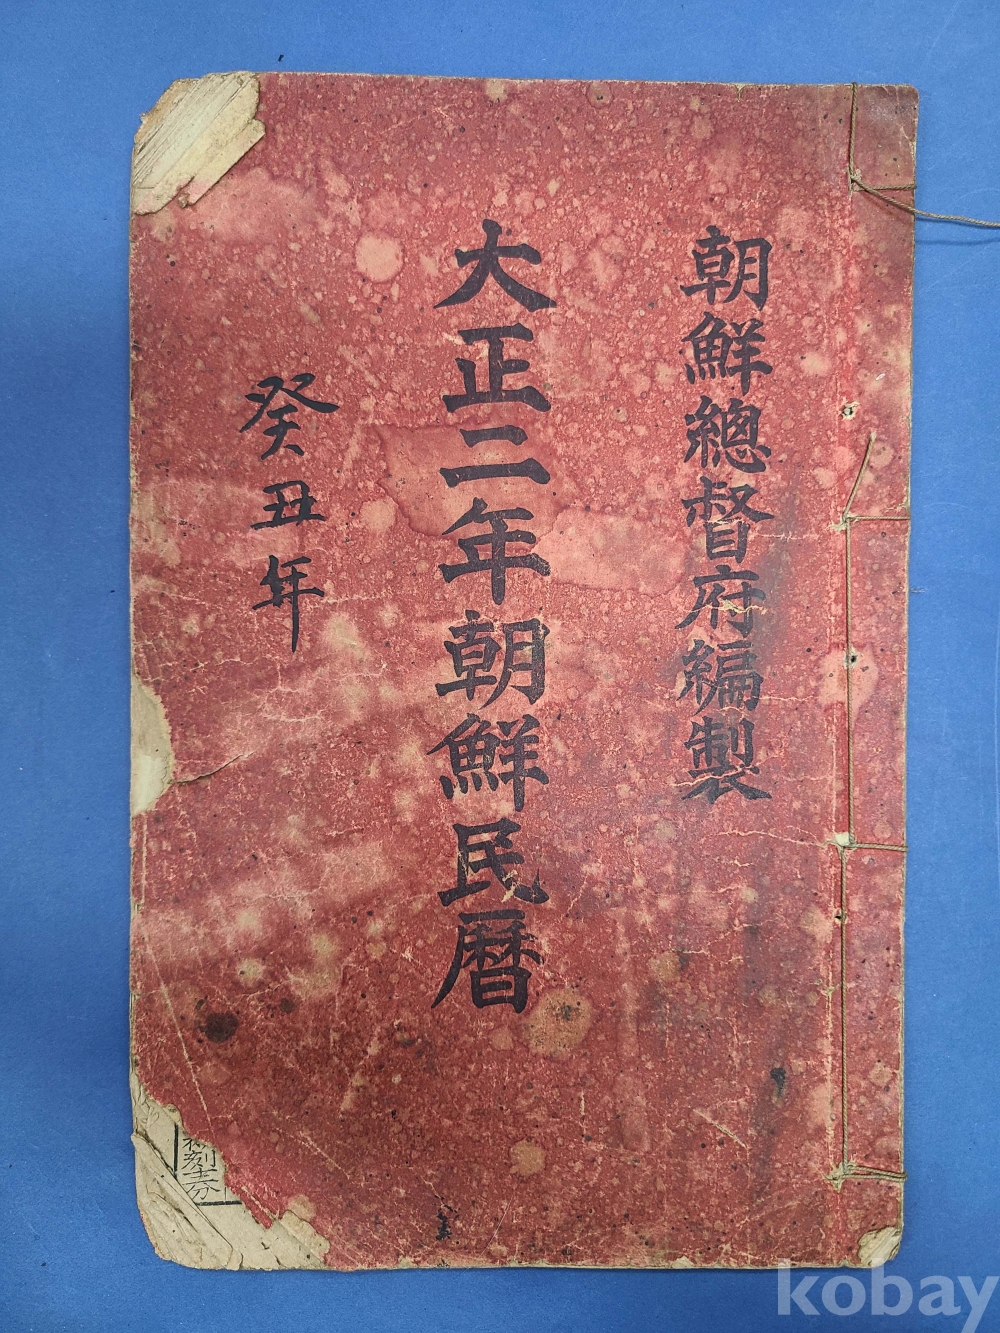 朝鮮總督府編製
大正二年朝鮮民曆
癸丑年
刻
分
kobay